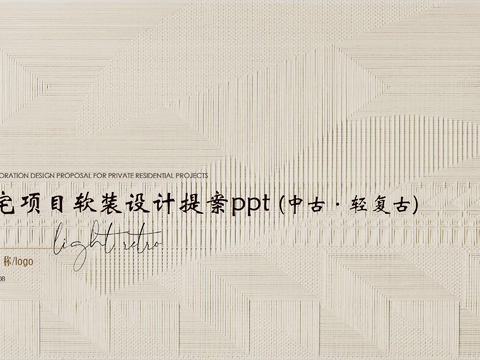 ORATION DESIGN PROPOSAL FOR PRIVATE RESIDENTIAL PROJECTS
宅项目软装设计提案ppt (中古·轻复古)
light retro
称/logo
08